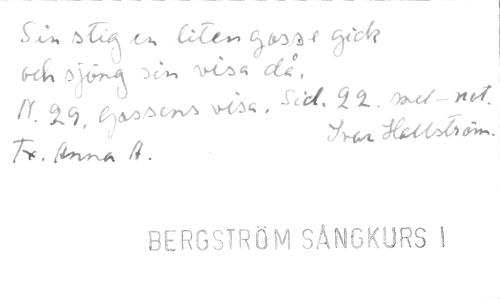 Sin stig en liten gosse gick
och sjöng sin visa då.
N. 29. Gossens visa. Sid. 22. mel-not.
Ivar Hallström.
Tx. Anna A.
BERGSTRÖM SÅNGKURS I